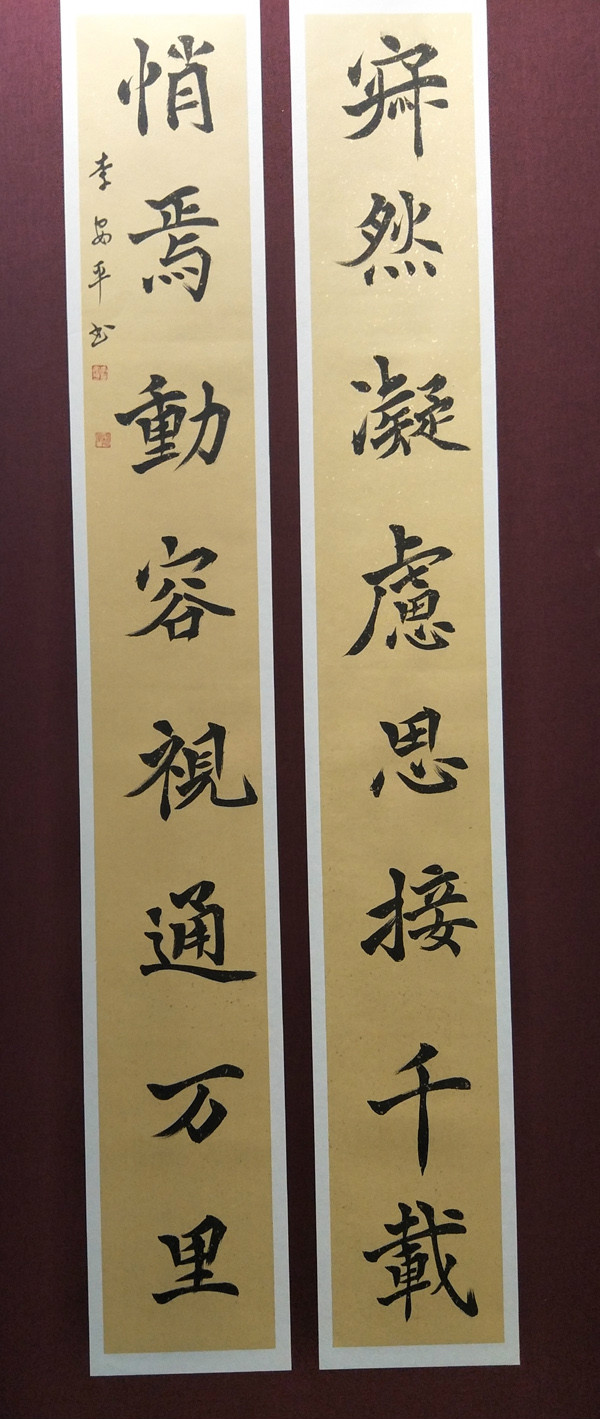 寂然凝慮思接千載
悄焉動容視通万里
李安平书